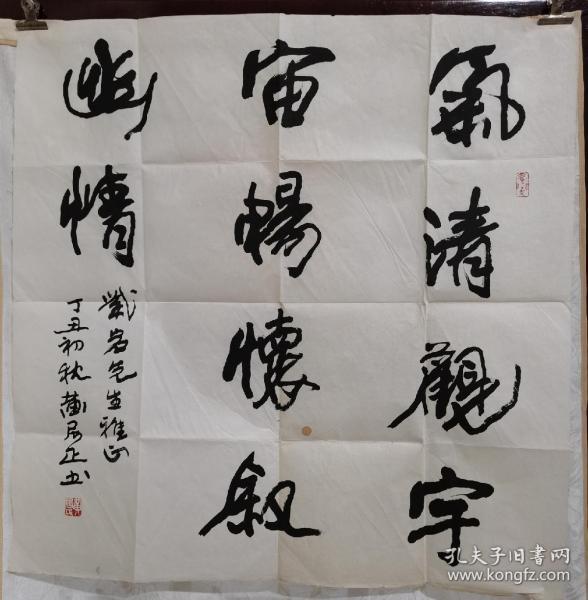 氣清觀宇
宙暢懷叙
幽情
先生雅正
丁丑初秋黃居正书
孔夫子旧书网
www.kongfz.com